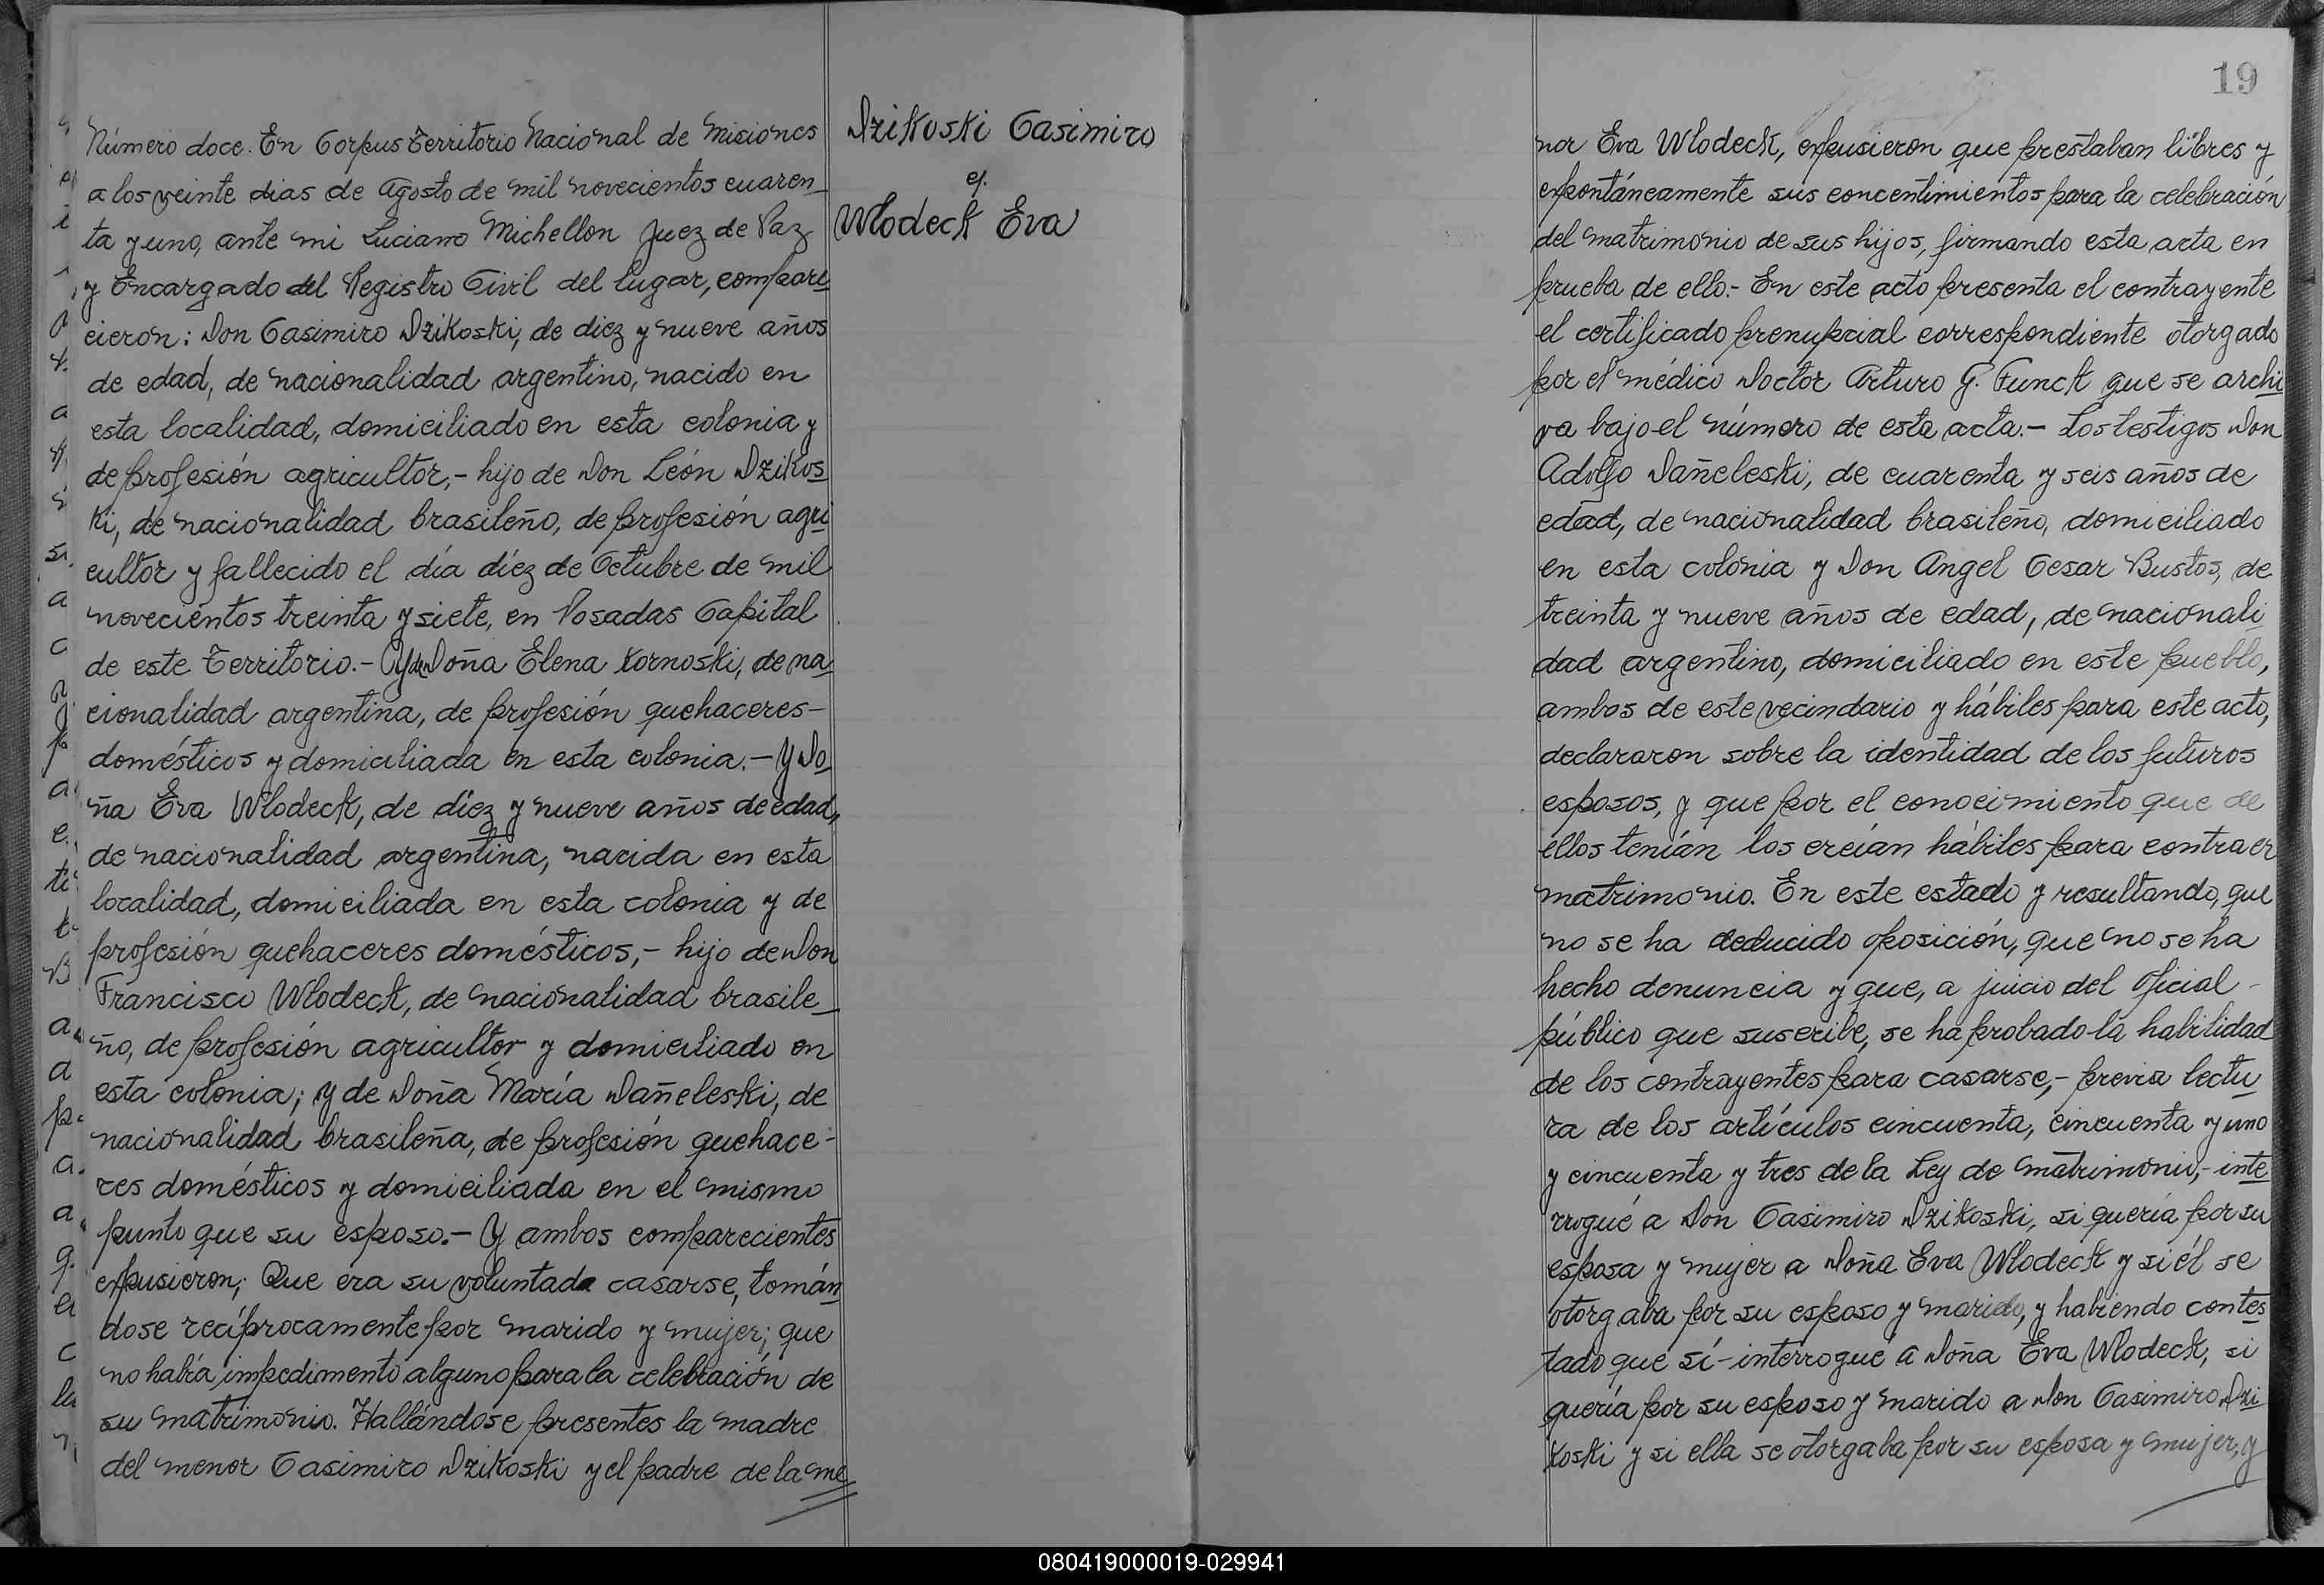 Número doce. En Corpus Territorio Nacional de Misiones
a los veinte dias de Agosto de mil novecientos cuaren_
ta y uno, ante mi Luciano Michellon Juez de Paz
y Encargado del Registro Civil del lugar, compare
cieron: Don Casimiro Dzikoski, de diez y nueve años
de edad, de nacionalidad argentino, nacido en
esta localidad, domiciliado en esta colonia y
de profesión agricultor,- hijo de Don León Dzikos
ki, de nacionalidad brasileño, de profesión agri
cultor y fallecido el día diez de Octubre de mil
novecientos treinta y siete, en Posadas Capital
de este Territorio.- Y de Doña Elena Kornoski, de na
cionalidad argentina, de profesión quehaceres-
domésticos y domiciliada en esta colonia.- Y Do
ña Eva Wlodeck, de diez y nueve años de edad,
de nacionalidad argentina, nacida en esta
localidad, domiciliada en esta colonia y de
profesión quehaceres domésticos,- hijo de Don
Francisco Wlodeck, de nacionalidad brasile_
ño, de profesión agricultor y domiciliado en
esta colonia; y de Doña María Dañeleski, de
nacionalidad brasileña, de profesión quehace-
res domésticos y domiciliada en el mismo
punto que su esposo.- Y ambos comparecientes
expusieron; Que era su voluntad casarse, tomán
dose recíprocamente por marido y mujer; que
no había impedimento alguno para la celebración de
su matrimonio. Hallándose presentes la madre
del menor Casimiro Dzikoski y el padre de la me
Dzikoski Casimiro
c/.
Wlodeck Eva
19
nor Eva Wlodeck, expusieron que prestaban libres y
expontáneamente sus concentimientos para la celebración
del matrimonio de sus hijos, firmando esta acta en
prueba de ello.- En este acto presenta el contrayente
el certificado prenupcial correspondiente otorgado
por el médico Doctor Arturo G. Funck que se archi
va bajo el número de esta acta.- Los testigos Don
Adolfo Dañeleski, de cuarenta y seis años de
edad, de nacionalidad brasileño, domiciliado
en esta colonia y Don Angel Cesar Bustos, de
treinta y nueve años de edad, de nacionali
dad argentino, domiciliado en este pueblo,
ambos de este vecindario y hábiles para este acto,
declararon sobre la identidad de los futuros
esposos, y que por el conocimiento que de
ellos tenían los creían hábiles para contraer
matrimonio. En este estado y resultando, que
no se ha deducido oposición, que no se ha
hecho denuncia y que, a juicio del Oficial -
público que suscribe, se ha probado la habilidad
de los contrayentes para casarse,- previa lectu
ra de los artículos cincuenta, cincuenta y uno
y cincuenta y tres de la Ley de Matrimonio,- inte
rrogué a Don Casimiro Dzikoski, si quería por su
esposa y mujer a Doña Eva Wlodeck y si él se
otorgaba por su esposo y marido, y habiendo contes
tado que sí- interrogué a Doña Eva Wlodeck, si
quería por su esposo y marido a Don Casimiro Dzi
koski y si ella se otorgaba por su esposa y mujer, y
080419000019-029941